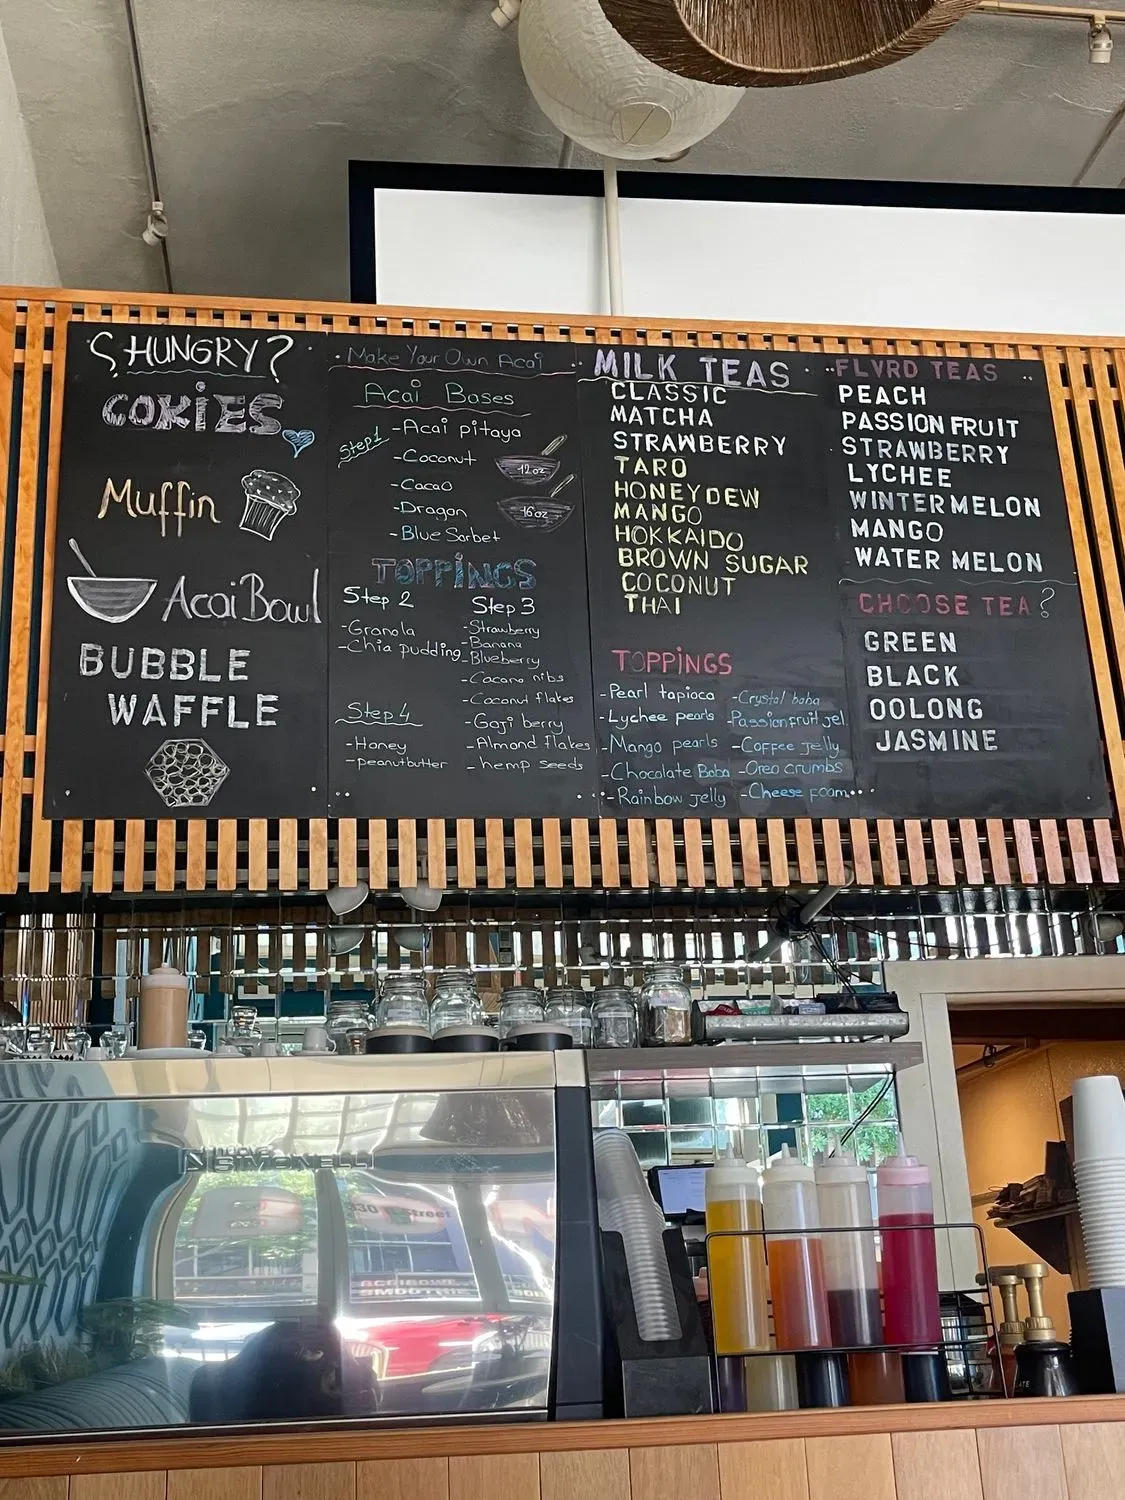 HUNGRY?
COKiES
Muffin
Acai Bowl
BUBBLE
WAFFLE
Make Your Own Acai
Acai Bases
Step1
-Acai pitaya
-Coconut
12oz
-Cacao
-Dragon
16oz
-Blue Sorbet
TOPPiNGS
Step 2
-Granola
-Chia pudding
Step 3
-Strawberry
-Banana
-Blueberry
-Cacano nibs
-Coconut flakes
-Goji berry
-Almond flakes
-hemp seeds
Step4
-Honey
-peanutbutter
MILK TEAS
CLASSIC
MATCHA
STRAWBERRY
TARO
HONEYDEW
MANGO
HOKKAIDO
BROWN SUGAR
COCONUT
THAI
TOPPiNGS
-Pearl tapioca
-Lychee pearls
-Mango pearls
-Chocolate Boba
-Rainbow jelly
-Crystal boba
-Passionfruit jel
-Coffee jelly
-Oreo crumbs
-Cheese foam
FLVRD TEAS
PEACH
PASSION FRUIT
STRAWBERRY
LYCHEE
WINTERMELON
MANGO
WATER MELON
CHOOSE TEA?
GREEN
BLACK
OOLONG
JASMINE
nuova
SIMONELLI